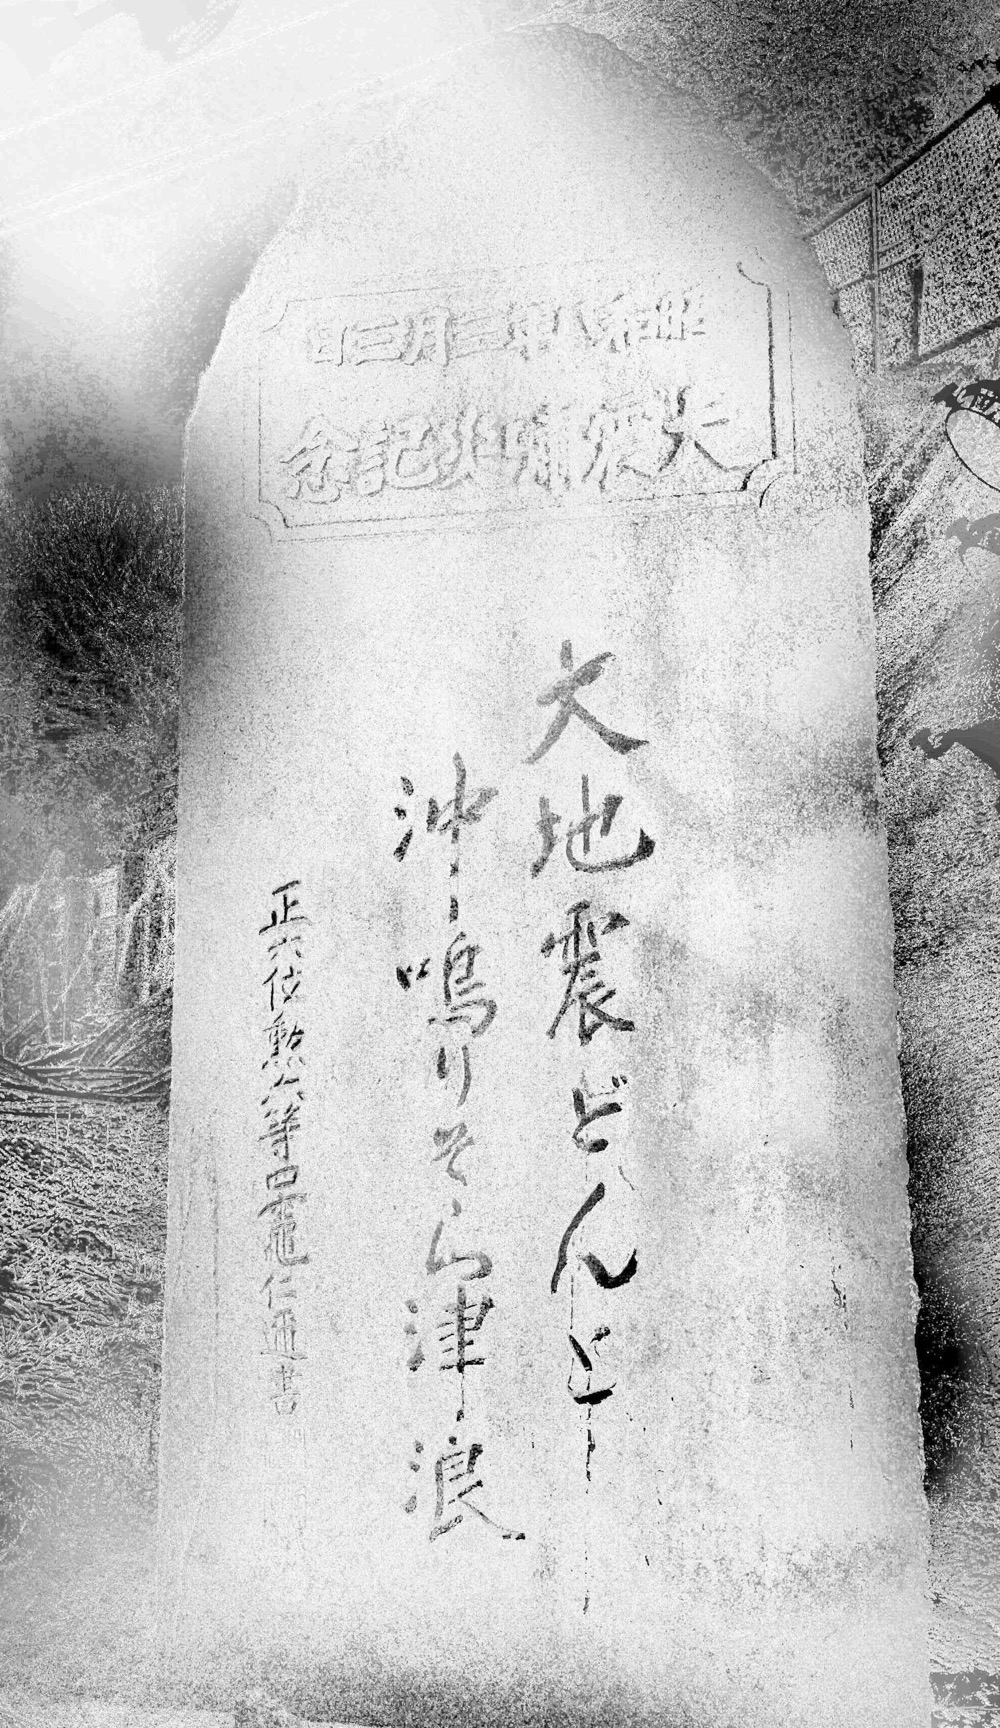 昭和八年三月三日
大震嘯災記念
大地震どんと
沖鳴りそら津浪
正六位勲六等日 仁 書